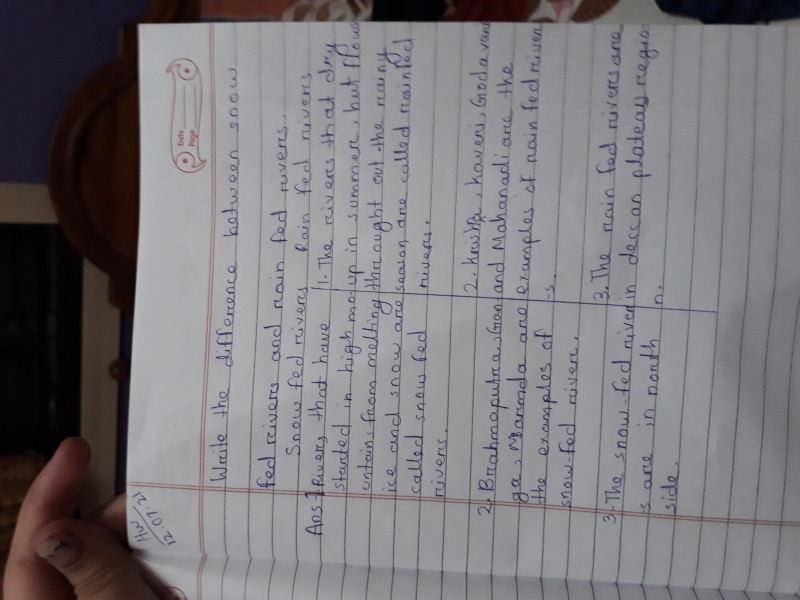 HW
12.07.21
Date
Page
Write the difference between snow
fed rivers and rain fed rivers.
Snow fed rivers Rain fed rivers
Ans 1. Rivers that have 1. The rivers that dry
started in high mo- up in summer, but flows
untains from melting throught out the rainy
ice and snow are season are called rainfed
called snow fed rivers.
rivers.
2. Brahmaputra, Gan- 2. Krishna, Kaveri, Godavari
ga, Narmda are and Mahanadi are the
the examples of examples of rain fed river
snow-fed river. -s.
3. The snow-fed river 3. The rain fed rivers are
s are in north in deccan plateau regio
side. n.